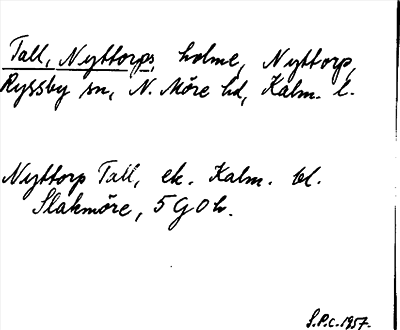 Tall, Nyttorps holme, Nyttorp,
Ryssby sn, N. Möre hd, Kalm. l.
Nyttorp Tall, ek. Kalm. bl.
Slakmöre, 5 G O h.
S.P.c. 1957.